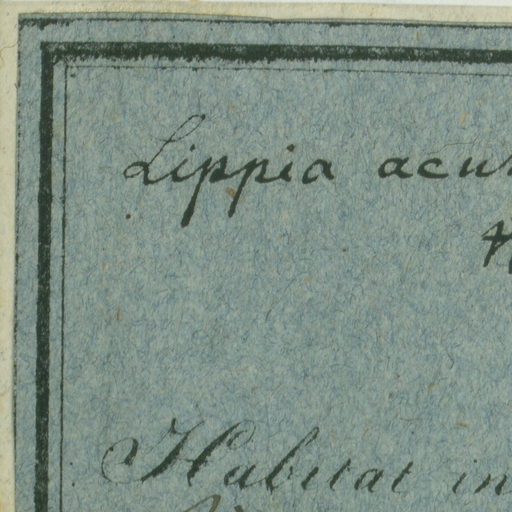 Lippia
Habitat in